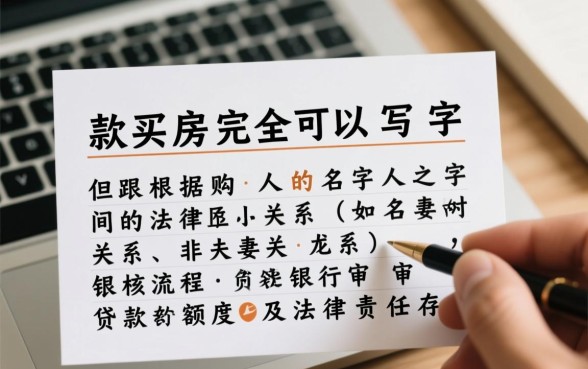 款买房完全可以写字
但跟根据购·人的名字人之字
间的法律 小关系（如名妻 时
关系、非夫妻关·龙系），
银核流程· 银行审 审
贷款 额度 及法律责任存